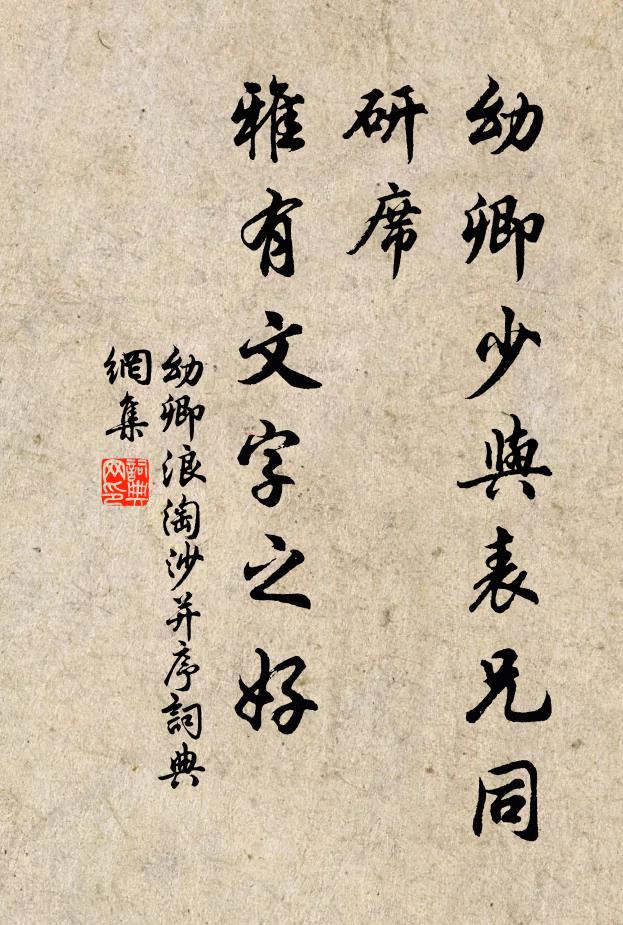 幼卿少與表兄同
研席
雅有文字之好
幼卿浪淘沙并序詞典
網集
詞典
网印